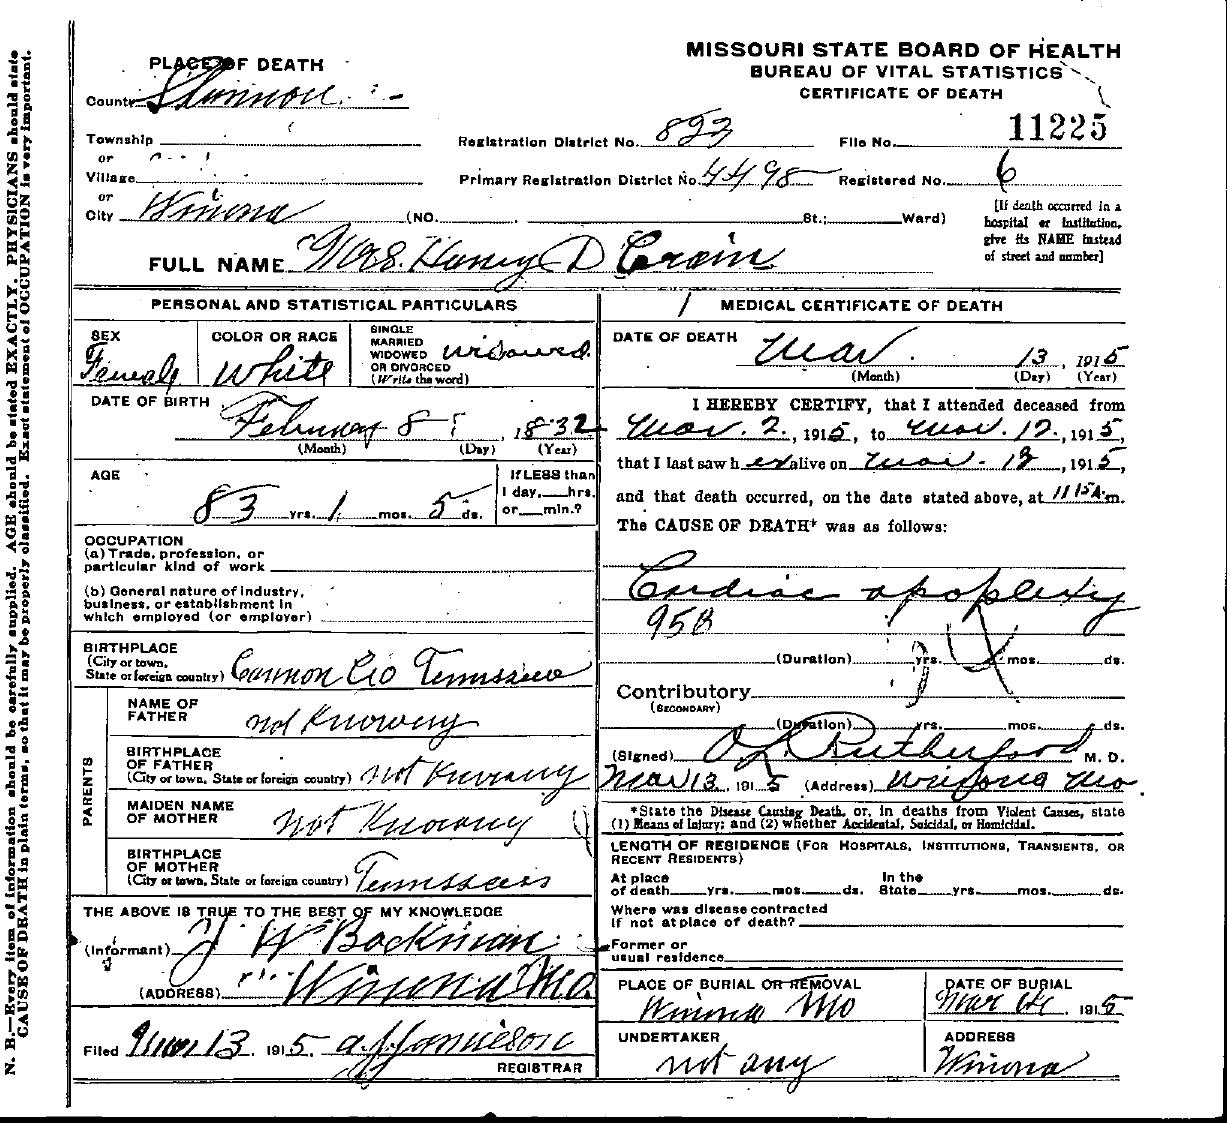 MISSOURI STATE BOARD OF HEALTH
BUREAU OF VITAL STATISTICS
CERTIFICATE OF DEATH
PLACE OF DEATH
County Shannon
Township
or
Village
or
City Winona (NO. St.; Ward)
Registration District No. 823 File No. 11225
Primary Registration District No. 4498 Registered No. 6
[If death occurred in a
hospital or institution,
give its NAME instead
of street and number]
FULL NAME Mrs. Henry D Crain
PERSONAL AND STATISTICAL PARTICULARS
SEX
Female
COLOR OR RACE
White
SINGLE
MARRIED
WIDOWED
OR DIVORCED
(Write the word)
widowed
DATE OF BIRTH
February 8, 1832
(Month) (Day) (Year)
AGE
83 yrs. 1 mos. 5 ds.
If LESS than
1 day, hrs.
or min.?
OCCUPATION
(a) Trade, profession, or
particular kind of work
(b) General nature of industry,
business, or establishment in
which employed (or employer)
BIRTHPLACE
(City or town,
State or foreign country) Cannon Co Tennessee
PARENTS
NAME OF
FATHER not Knowny
BIRTHPLACE
OF FATHER
(City or town, State or foreign country) not Knowny
MAIDEN NAME
OF MOTHER not Knowny
BIRTHPLACE
OF MOTHER
(City or town, State or foreign country) Tennessee
THE ABOVE IS TRUE TO THE BEST OF MY KNOWLEDGE
(Informant) J W Bockman
(ADDRESS) Winona Mo.
Filed Mar 13, 1915. A J Jamieson
REGISTRAR
MEDICAL CERTIFICATE OF DEATH
DATE OF DEATH Mar. 13, 1915
(Month) (Day) (Year)
I HEREBY CERTIFY, that I attended deceased from
Mar. 2, 1915, to Mar. 12, 1915,
that I last saw her alive on Mar. 12, 1915,
and that death occurred, on the date stated above, at 11 15 A. m.
The CAUSE OF DEATH* was as follows:
Cardiac apoplexy
95B
(Duration) yrs. mos. ds.
Contributory
(SECONDARY)
(Duration) yrs. mos. ds.
(Signed) O L Rutherford M. D.
Mar 13, 1915 (Address) Winona Mo.
*State the Disease Causing Death, or, in deaths from Violent Causes, state
(1) Means of Injury; and (2) whether Accidental, Suicidal, or Homicidal.
LENGTH OF RESIDENCE (FOR HOSPITALS, INSTITUTIONS, TRANSIENTS, OR
RECENT RESIDENTS)
At place In the
of death yrs. mos. ds. State yrs. mos. ds.
Where was disease contracted
if not at place of death?
Former or
usual residence
PLACE OF BURIAL OR REMOVAL
Winona Mo
DATE OF BURIAL
Mar 14, 1915
UNDERTAKER
not any
ADDRESS
Winona
N. B.—Every item of information should be carefully supplied. AGE should be stated EXACTLY. PHYSICIANS should state
CAUSE OF DEATH in plain terms, so that it may be properly classified. Exact statement of OCCUPATION is very important.